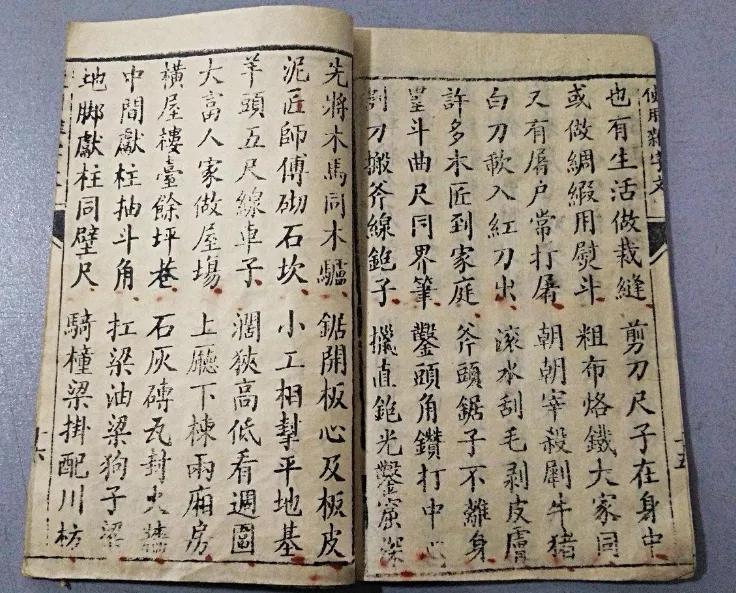 也有生活做裁縫 剪刀尺子在身中
或做綢緞用熨斗 粗布烙鐵大家同
又有屠户常打屠 朝朝宰殺剮牛猪
白刀軟入紅刀出 滾水刮毛剥皮膚
許多木匠到家庭 斧頭鋸子不離身
墨斗曲尺同界筆 鑿頭角鑽打中心
刀搬斧線鉋子 直鉋光鑿窟深
先將木馬同木驢 鋸開板心及板皮
泥匠師傅砌石坎 小工相拏平地基
羊頭五尺線車子 濶狹高低看週圍
大富人家做屋場 上廳下棟兩廂房
橫屋樓臺餘坪巷 石灰磚瓦封火牆
中間獻柱抽斗角 扛梁油梁狗子梁
地脚獻柱同壁尺 騎橦梁掛配川枋